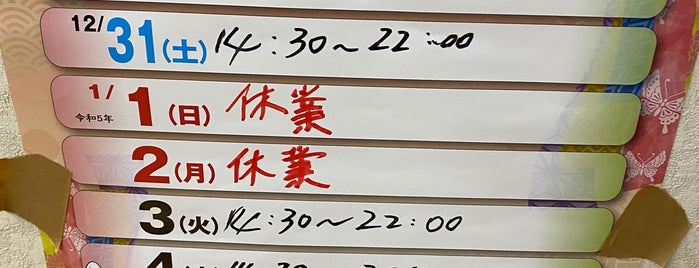 12/31(土) 14:30～22:00
1/1(日) 休業
令和5年
2(月) 休業
3(火) 14:30～22:00
4